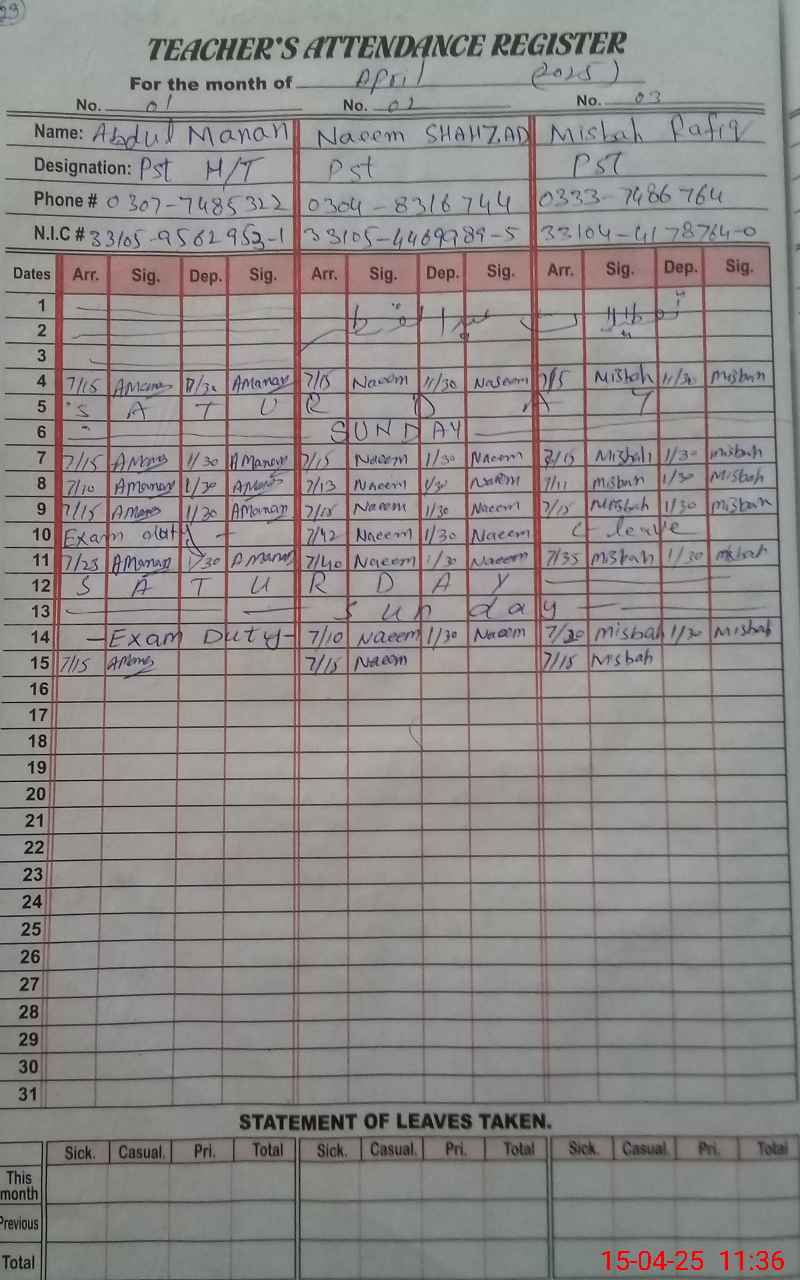 TEACHER'S ATTENDANCE REGISTER
For the month of April (2025)
No. 01 No. 02 No. 03
Name: Abdul Manan Naeem SHAHZAD Misbah Rafiq
Designation: Pst H/T Pst PST
Phone # 0307-7485322 0304-8316744 0333-7486764
N.I.C # 33105-9562953-1 33105-4469989-5 33104-4178764-0
Dates Arr. Sig. Dep. Sig. Arr. Sig. Dep. Sig. Arr. Sig. Dep. Sig.
1
2
3
4 7/15 AManan 11/30 AManan 7/15 Naeem 11/30 Naseem 7/15 Misbah 11/30 Misbah
5 S A T U R D A Y
6 SUNDAY
7 7/15 AManan 1/30 AManan 7/15 Naeem 1/30 Naeem 7/15 Misbah 1/30 misbah
8 7/10 AManan 1/30 AManan 7/13 Naeem 1/30 Naeem 7/11 misbah 1/30 Misbah
9 7/15 AManan 1/30 AManan 7/15 Naeem 1/30 Naeem 7/15 Misbah 1/30 misbah
10 Exam duty 7/42 Naeem 1/30 Naeem leave
11 7/23 AManan 1/30 AManan 7/40 Naeem 1/30 Naeem 7/35 misbah 1/30 misbah
12 S A T U R D A Y
13 Sunday
14 -Exam Duty- 7/10 Naeem 1/30 Naeem 7/20 misbah 1/30 Misbah
15 7/15 AManan 7/15 Naeem 7/15 Misbah
16
17
18
19
20
21
22
23
24
25
26
27
28
29
30
31
STATEMENT OF LEAVES TAKEN.
Sick. Casual. Pri. Total Sick. Casual. Pri. Total Sick. Casual. Pri. Total
This month
Previous
Total
15-04-25 11:36